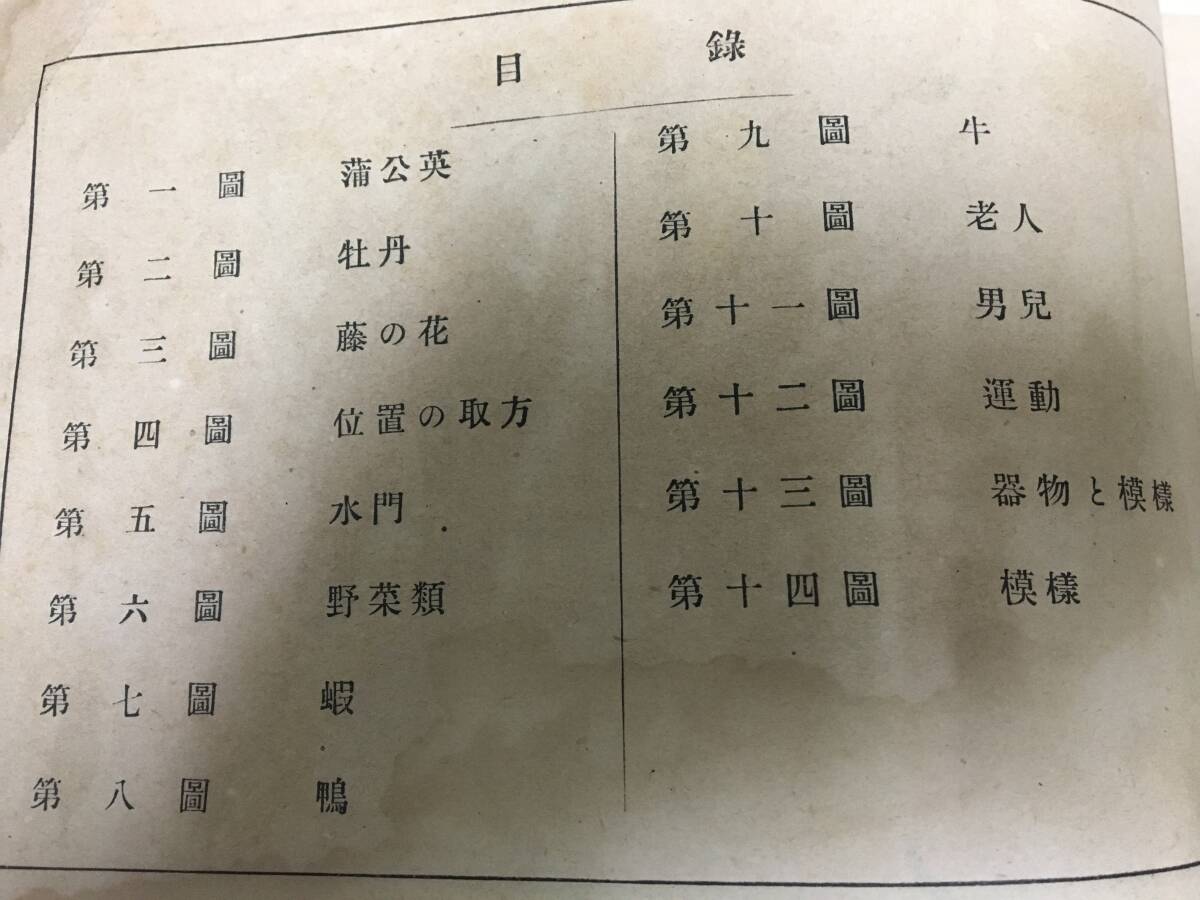 目錄
第一圖 蒲公英
第二圖 牡丹
第三圖 藤の花
第四圖 位置の取方
第五圖 水門
第六圖 野菜類
第七圖 蝦
第八圖 鴨
第九圖 牛
第十圖 老人
第十一圖 男兒
第十二圖 運動
第十三圖 器物と模樣
第十四圖 模樣